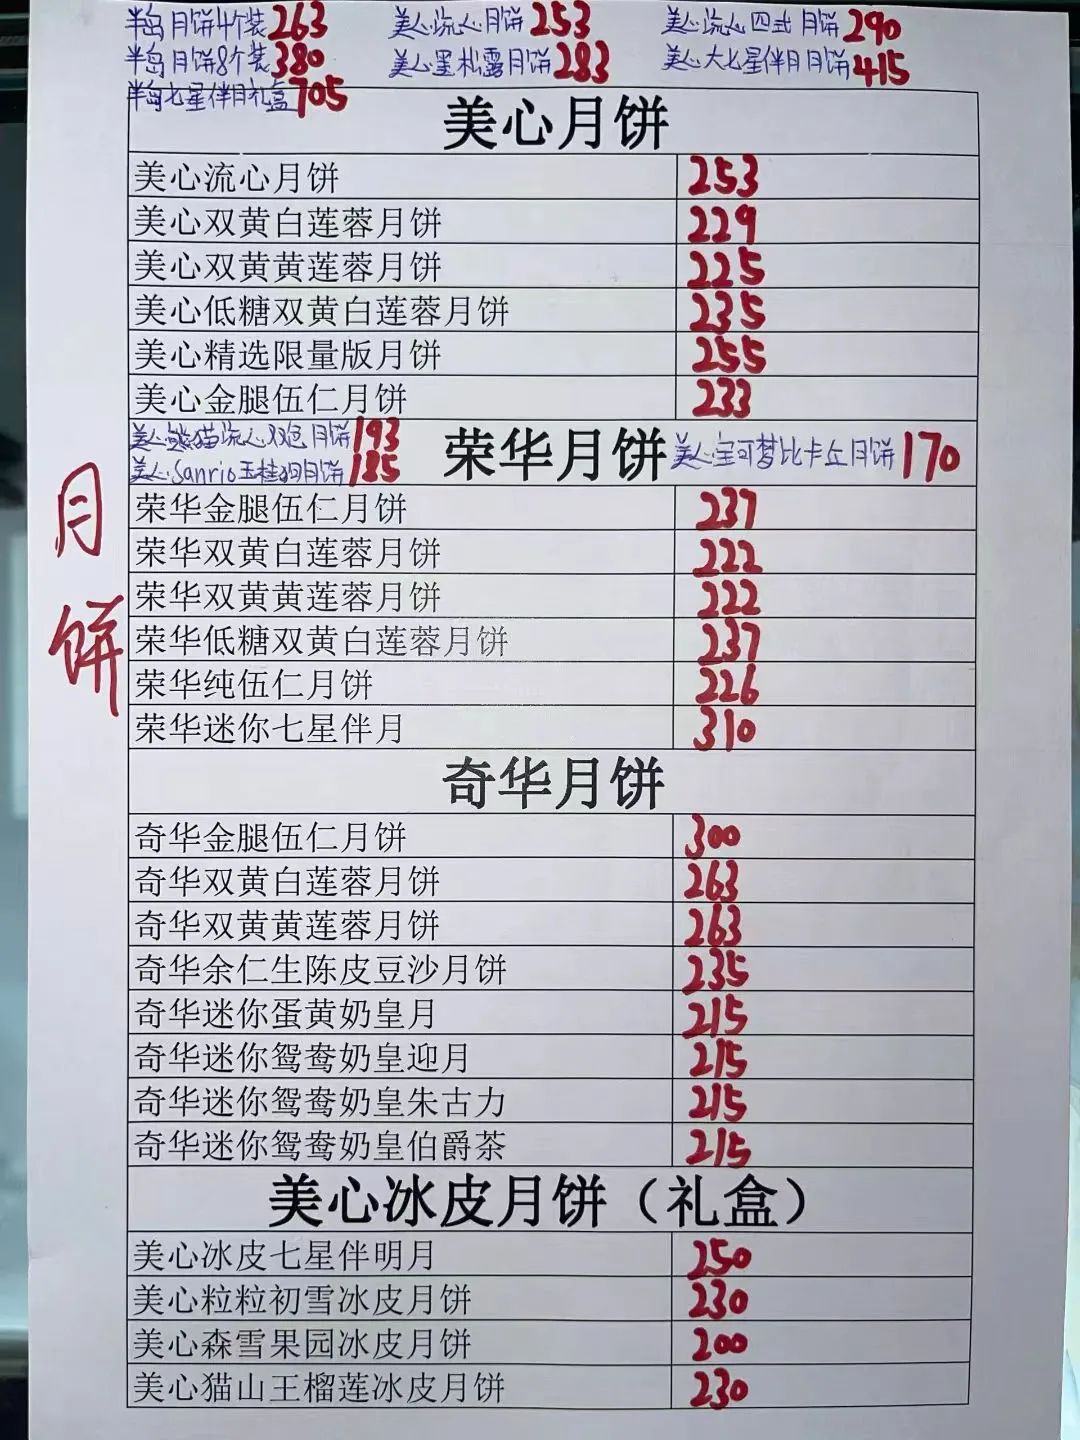 半岛月饼4个装263 美心流心月饼253 美心流心四式月饼290
半岛月饼8个装380 美心黑松露月饼283 美心大七星伴月月饼415
半岛七星伴月礼盒705
美心月饼
美心流心月饼 253
美心双黄白莲蓉月饼 229
美心双黄黄莲蓉月饼 225
美心低糖双黄白莲蓉月饼 235
美心精选限量版月饼 255
美心金腿伍仁月饼 233
美心熊猫流心双色月饼193
美心Sanrio玉桂狗月饼185
荣华月饼
美心宝可梦比卡丘月饼170
荣华金腿伍仁月饼 237
荣华双黄白莲蓉月饼 222
荣华双黄黄莲蓉月饼 222
荣华低糖双黄白莲蓉月饼 237
荣华纯伍仁月饼 226
荣华迷你七星伴月 310
月饼
奇华月饼
奇华金腿伍仁月饼 300
奇华双黄白莲蓉月饼 263
奇华双黄黄莲蓉月饼 263
奇华余仁生陈皮豆沙月饼 235
奇华迷你蛋黄奶皇月 215
奇华迷你鸳鸯奶皇迎月 215
奇华迷你鸳鸯奶皇朱古力 215
奇华迷你鸳鸯奶皇伯爵茶 215
美心冰皮月饼（礼盒）
美心冰皮七星伴明月 250
美心粒粒初雪冰皮月饼 230
美心森雪果园冰皮月饼 200
美心猫山王榴莲冰皮月饼 230